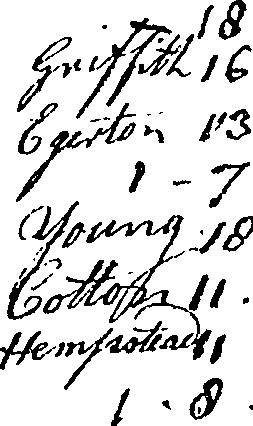 18
Griffith 16
Egerton 13
1 - 7
Young 18
Cotton 11.
Hempstead 11
1 . 8.